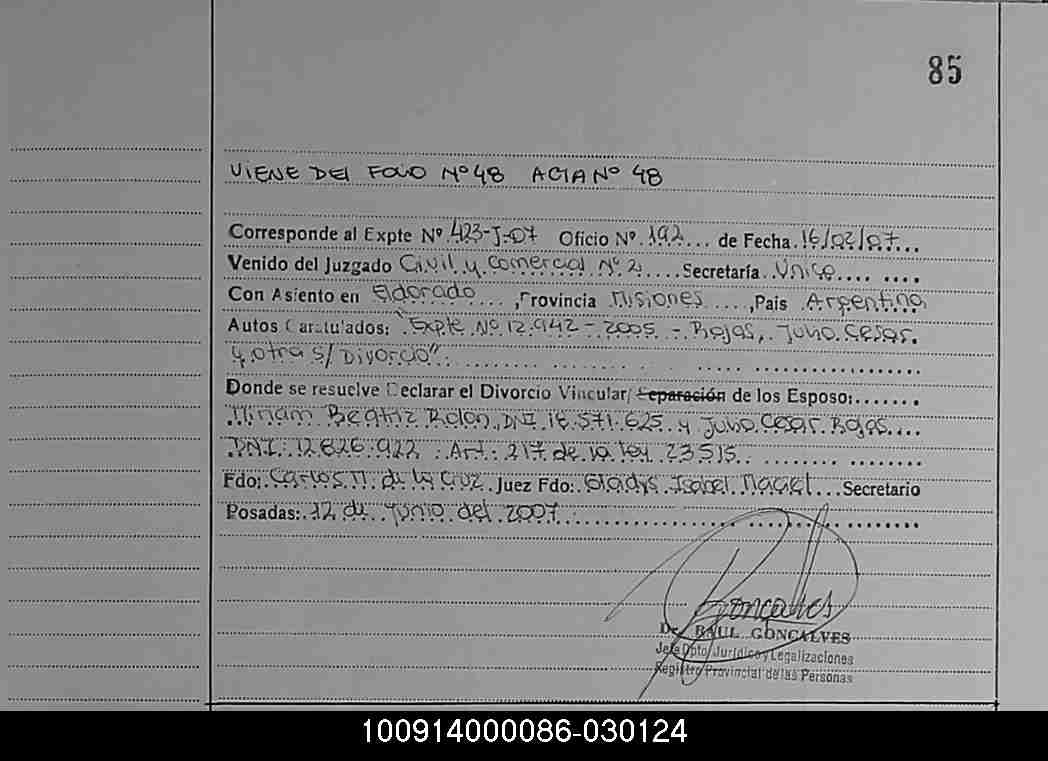 85
VIENE DEL FOLIO Nº 48 ACTA Nº 48
Corresponde al Expte Nº 423-J-07 Oficio Nº 192 de Fecha 16/02/07
Venido del Juzgado Civil y Comercial Nº 2 Secretaría Unica
Con Asiento en Eldorado, Provincia Misiones, País Argentina
Autos Caratulados: "Expte Nº 12.942 - 2005 - Rojas, Julio Cesar
y otra s/ Divorcio".
Donde se resuelve Declarar el Divorcio Vincular/ Separación de los Esposo:
Miriam Beatriz Rolon, DNI 18.571.625 y Julio Cesar Rojas
DNI: 12.826.922. Art: 217 de la ley 23515
Fdo: Carlos M. de la Cruz Juez Fdo: Gladys Isabel Secretario
Posadas: 12 de Junio del 2007
Goncalves
Dr. RAUL GONCALVES
Jefe Dpto. Jurídico y Legalizaciones
Registro Provincial de las Personas
100914000086-030124